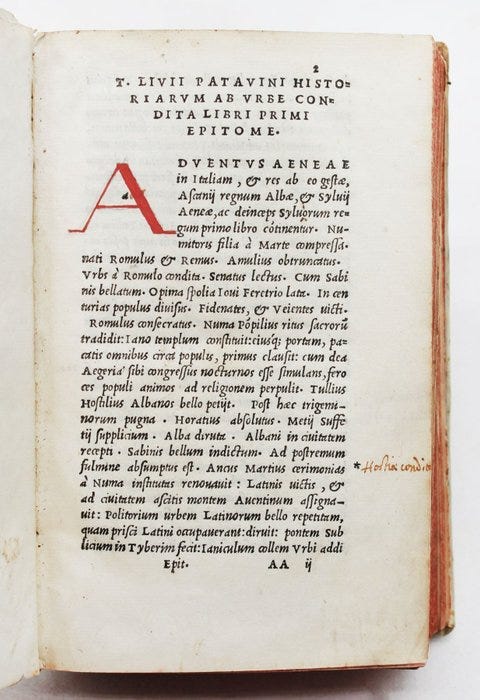 2
T. LIVII PATAVINI HISTO=
RIARVM AB VRBE CON=
DITA LIBRI PRIMI
EPITOME.
A
a
DVENTVS AENEAE
in Italiam, & res ab eo gestæ,
Ascanij regnum Albæ, & Syluij
Aeneæ, ac deinceps Syluiorum re=
gum primo libro cõtinentur. Nu=
mitoris filia à Marte compressa.
nati Romulus & Remus. Amulius obtruncatus.
Vrbs à Romulo condita. Senatus lectus. Cum Sabi
nis bellatum. Opima spolia Ioui Feretrio lata. In cen
turias populus diuisus. Fidenates, & Veientes uicti.
Romulus consecratus. Numa Põpilius ritus sacrorũ
tradidit: Iano templum constituit: eiusq; portam, pa=
catis omnibus circa populis, primus clausit: cum dea
Aegeria sibi congressus nocturnos esse simulans, fero
ces populi animos ad religionem perpulit. Tullius
Hostilius Albanos bello petijt. Post hæc trigemi=
norum pugna. Horatius absolutus. Metij Suffe
tij supplicium. Alba diruta. Albani in ciuitatem
recepti. Sabinis bellum indictum. Ad postremum
fulmine absumptus est. Ancus Martius cerimonias
* Hostia condita
à Numa institutas renouauit: Latinis uictis, &
ad ciuitatem ascitis montem Auentinum assigna=
uit: Politorium urbem Latinorum bello repetitam,
quam prisci Latini occupauerant: diruit: pontem Sub
licium in Tyberim fecit: Ianiculum collem Vrbi addi
Epit. AA ij